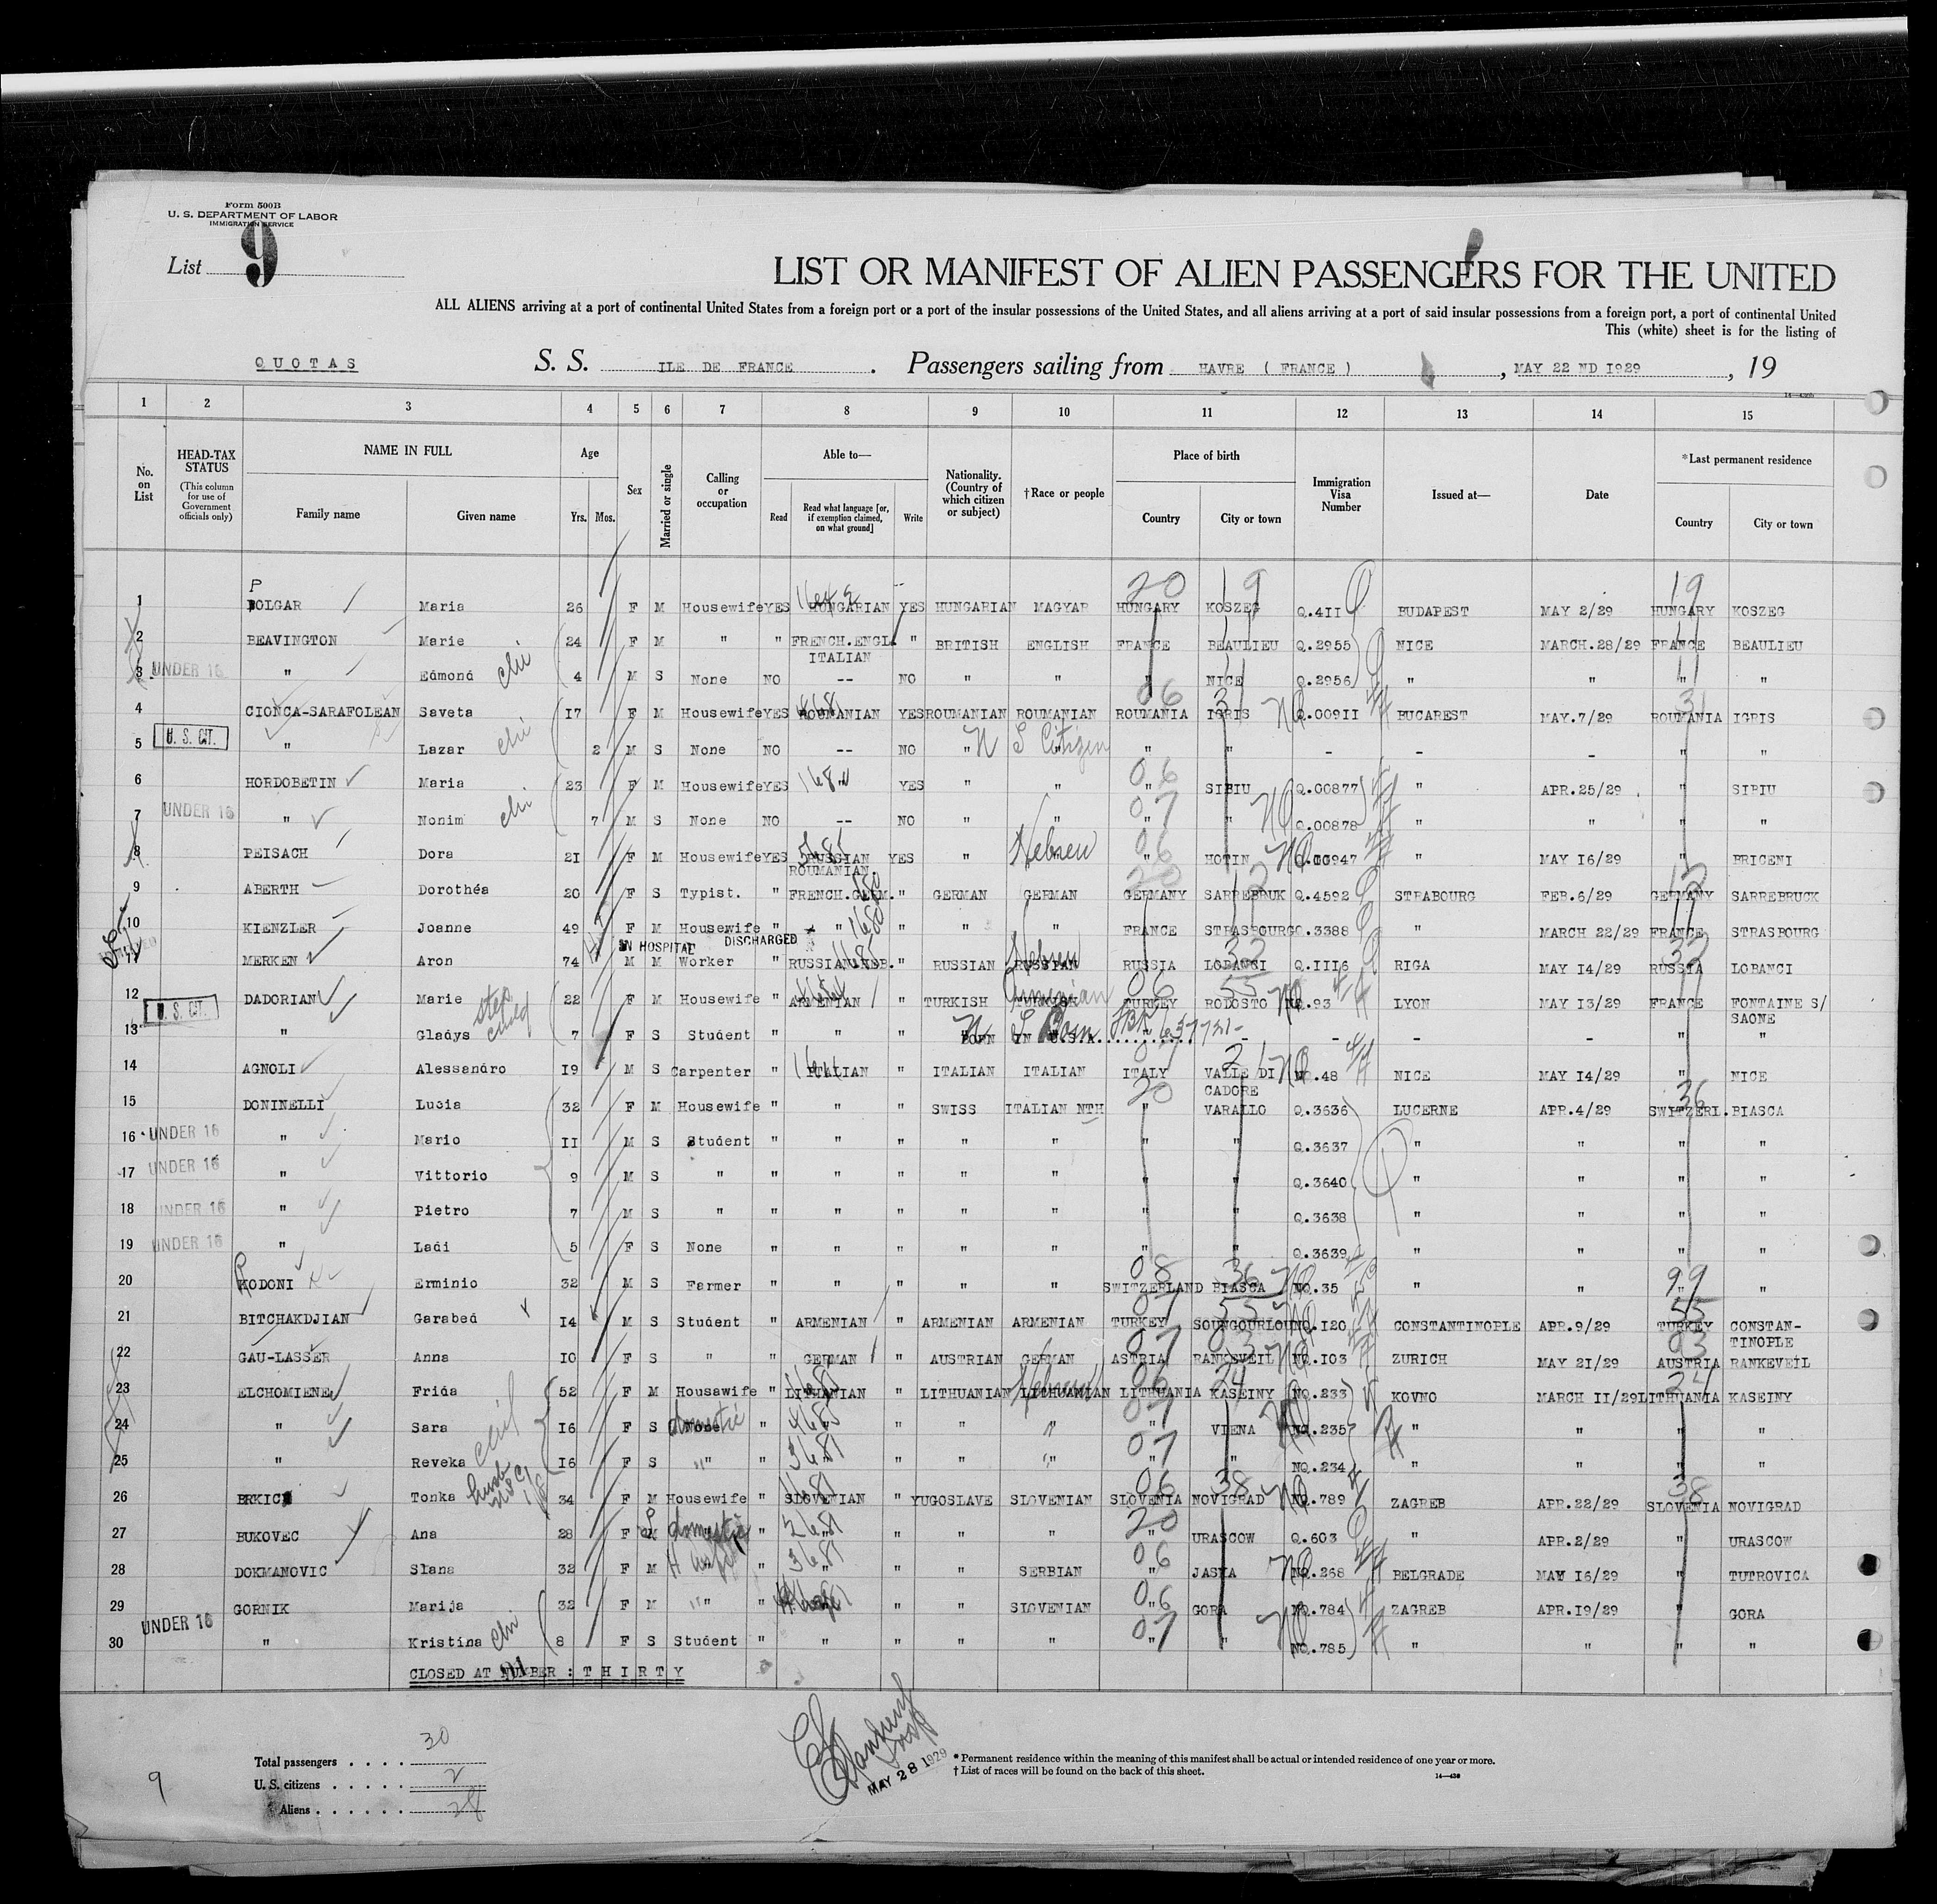 Form 500B
U. S. DEPARTMENT OF LABOR
IMMIGRATION SERVICE
List 9
LIST OR MANIFEST OF ALIEN PASSENGERS FOR THE UNITED
ALL ALIENS arriving at a port of continental United States from a foreign port or a port of the insular possessions of the United States, and all aliens arriving at a port of said insular possessions from a foreign port, a port of continental United
This (white) sheet is for the listing of
QUOTAS S. S. ILE DE FRANCE . Passengers sailing from HAVRE ( FRANCE ) , MAY 22 ND I929 , 19
1 2 3 4 5 6 7 8 9 10 11 12 13 14 15
No. on List
HEAD-TAX STATUS
(This column for use of Government officials only)
NAME IN FULL
Family name Given name
Age
Yrs. Mos.
Sex
Married or single
Calling or occupation
Able to—
Read
Read what language [or, if exemption claimed, on what ground]
Write
Nationality. (Country of which citizen or subject)
†Race or people
Place of birth
Country City or town
Immigration Visa Number
Issued at—
Date
*Last permanent residence
Country City or town
1 P OLGAR Maria 26 F M Housewife YES HUNGARIAN YES HUNGARIAN MAGYAR HUNGARY KOSZEG Q.4II BUDAPEST MAY 2/29 HUNGARY KOSZEG
2 BEAVINGTON Marie 24 F M " " FRENCH.ENGL. " BRITISH ENGLISH FRANCE BEAULIEU Q.2955 NICE MARCH.28/29 FRANCE BEAULIEU
ITALIAN
3 UNDER 16 " Edmond chi 4 M S None NO -- NO " " " NICE Q.2956 " " " "
4 CIONCA-SARAFOLEAN Saveta I7 F M Housewife YES ROUMANIAN YES ROUMANIAN ROUMANIAN ROUMANIA IGRIS NQ.009II BUCAREST MAY.7/29 ROUMANIA IGRIS
5 U. S. CIT. " Lazar chi 2 M S None NO -- NO " U S Citizen " " - - - " "
6 HORDOBETIN Maria 23 F M Housewife YES " YES " " " SIBIU Q.00877 " APR.25/29 " SIBIU
7 UNDER 16 " Nonim chi 7 M S None NO -- NO " " " " Q.00878 " " " "
8 PEISACH Dora 2I F M Housewife YES RUSSIAN YES " Hebrew " HOTIN 947 " MAY I6/29 " BRICENI
ROUMANIAN.
9 ABERTH Dorothéa 20 F S Typist. " FRENCH.GERM. " GERMAN GERMAN GERMANY SARREBRUK Q.4592 STRABOURG FEB.6/29 GERMANY SARREBRUCK
10 KIENZLER Joanne 49 F M Housewife " " " " " FRANCE STRASBOURG Q.3388 " MARCH 22/29 FRANCE STRASBOURG
IN HOSPITAL DISCHARGED
11 MERKEN Aron 74 M M Worker " RUSSIAN.HEB. " RUSSIAN Hebrew RUSSIA LOBANCI Q.III6 RIGA MAY I4/29 RUSSIA LOBANCI
12 DADORIAN Marie 22 F M Housewife " ARMENIAN " TURKISH Armenian TURKEY RODOSTO NQ.93 LYON MAY I3/29 FRANCE FONTAINE S/
SAONE
13 U. S. CIT. " Gladys step child 7 F S Student " " " BORN IN U.S.A. - - - - " "
14 AGNOLI Alessandro I9 M S Carpenter " ITALIAN " ITALIAN ITALIAN ITALY VALLE DI NQ.48 NICE MAY I4/29 " NICE
CADORE
15 DONINELLI Lucia 32 F M Housewife " " " SWISS ITALIAN NTH " VARALLO Q.3636 LUCERNE APR.4/29 SWITZERL. BIASCA
16 UNDER 16 " Mario II M S Student " " " " " " " Q.3637 " " " "
17 UNDER 16 " Vittorio 9 M S " " " " " " " " Q.3640 " " " "
18 UNDER 16 " Pietro 7 M S " " " " " " " " Q.3638 " " " "
19 UNDER 16 " Ladi 5 F S None " " " " " " " Q.3639 " " " "
20 RODONI Erminio 32 M S Farmer " " " " " SWITZERLAND BIASCA NQ.35 " " " "
21 BITCHAKDJIAN Garabed I4 M S Student " ARMENIAN " ARMENIAN ARMENIAN TURKEY SOUNGOURLOU NQ.I20 CONSTANTINOPLE APR.9/29 TURKEY CONSTAN-
TINOPLE
22 GAU-LASSER Anna I0 F S " " GERMAN " AUSTRIAN GERMAN ASTRIA RANKEVEIL NQ.I03 ZURICH MAY 2I/29 AUSTRIA RANKEVEIL
23 ELCHOMIENE Frida 52 F M Housawife " LITHUANIAN " LITHUANIAN Hebrew LITHUANIA KASEINY NQ.233 KOVNO MARCH II/29 LITHUANIA KASEINY
24 " Sara I6 F S domestic " " " " " " VIENA NQ.235 " " " "
25 " Reveka I6 F S " " " " " " " " NQ.234 " " " "
26 BRKIC Tonka 34 F M Housewife " SLOVENIAN " YUGOSLAVE SLOVENIAN SLOVENIA NOVIGRAD NQ.789 ZAGREB APR.22/29 SLOVENIA NOVIGRAD
27 BUKOVEC Ana 28 F S domestic " " " " " " URASCOW Q.603 " APR.2/29 " URASCOW
28 DOKMANOVIC Slana 32 F M " " " " SERBIAN " JASKA NQ.268 BELGRADE MAY I6/29 " TUTROVICA
29 GORNIK Marija 32 F M " " " " SLOVENIAN " GORA NQ.784 ZAGREB APR.I9/29 " GORA
30 UNDER 16 " Kristina chi 8 F S Student " " " " " " " NQ.785 " " " "
CLOSED AT NUMBER : T H I R T Y
Total passengers . . . . 30
U. S. citizens . . . . . 2
Aliens . . . . . . 28
9
MAY 28 1929
* Permanent residence within the meaning of this manifest shall be actual or intended residence of one year or more.
† List of races will be found on the back of this sheet.